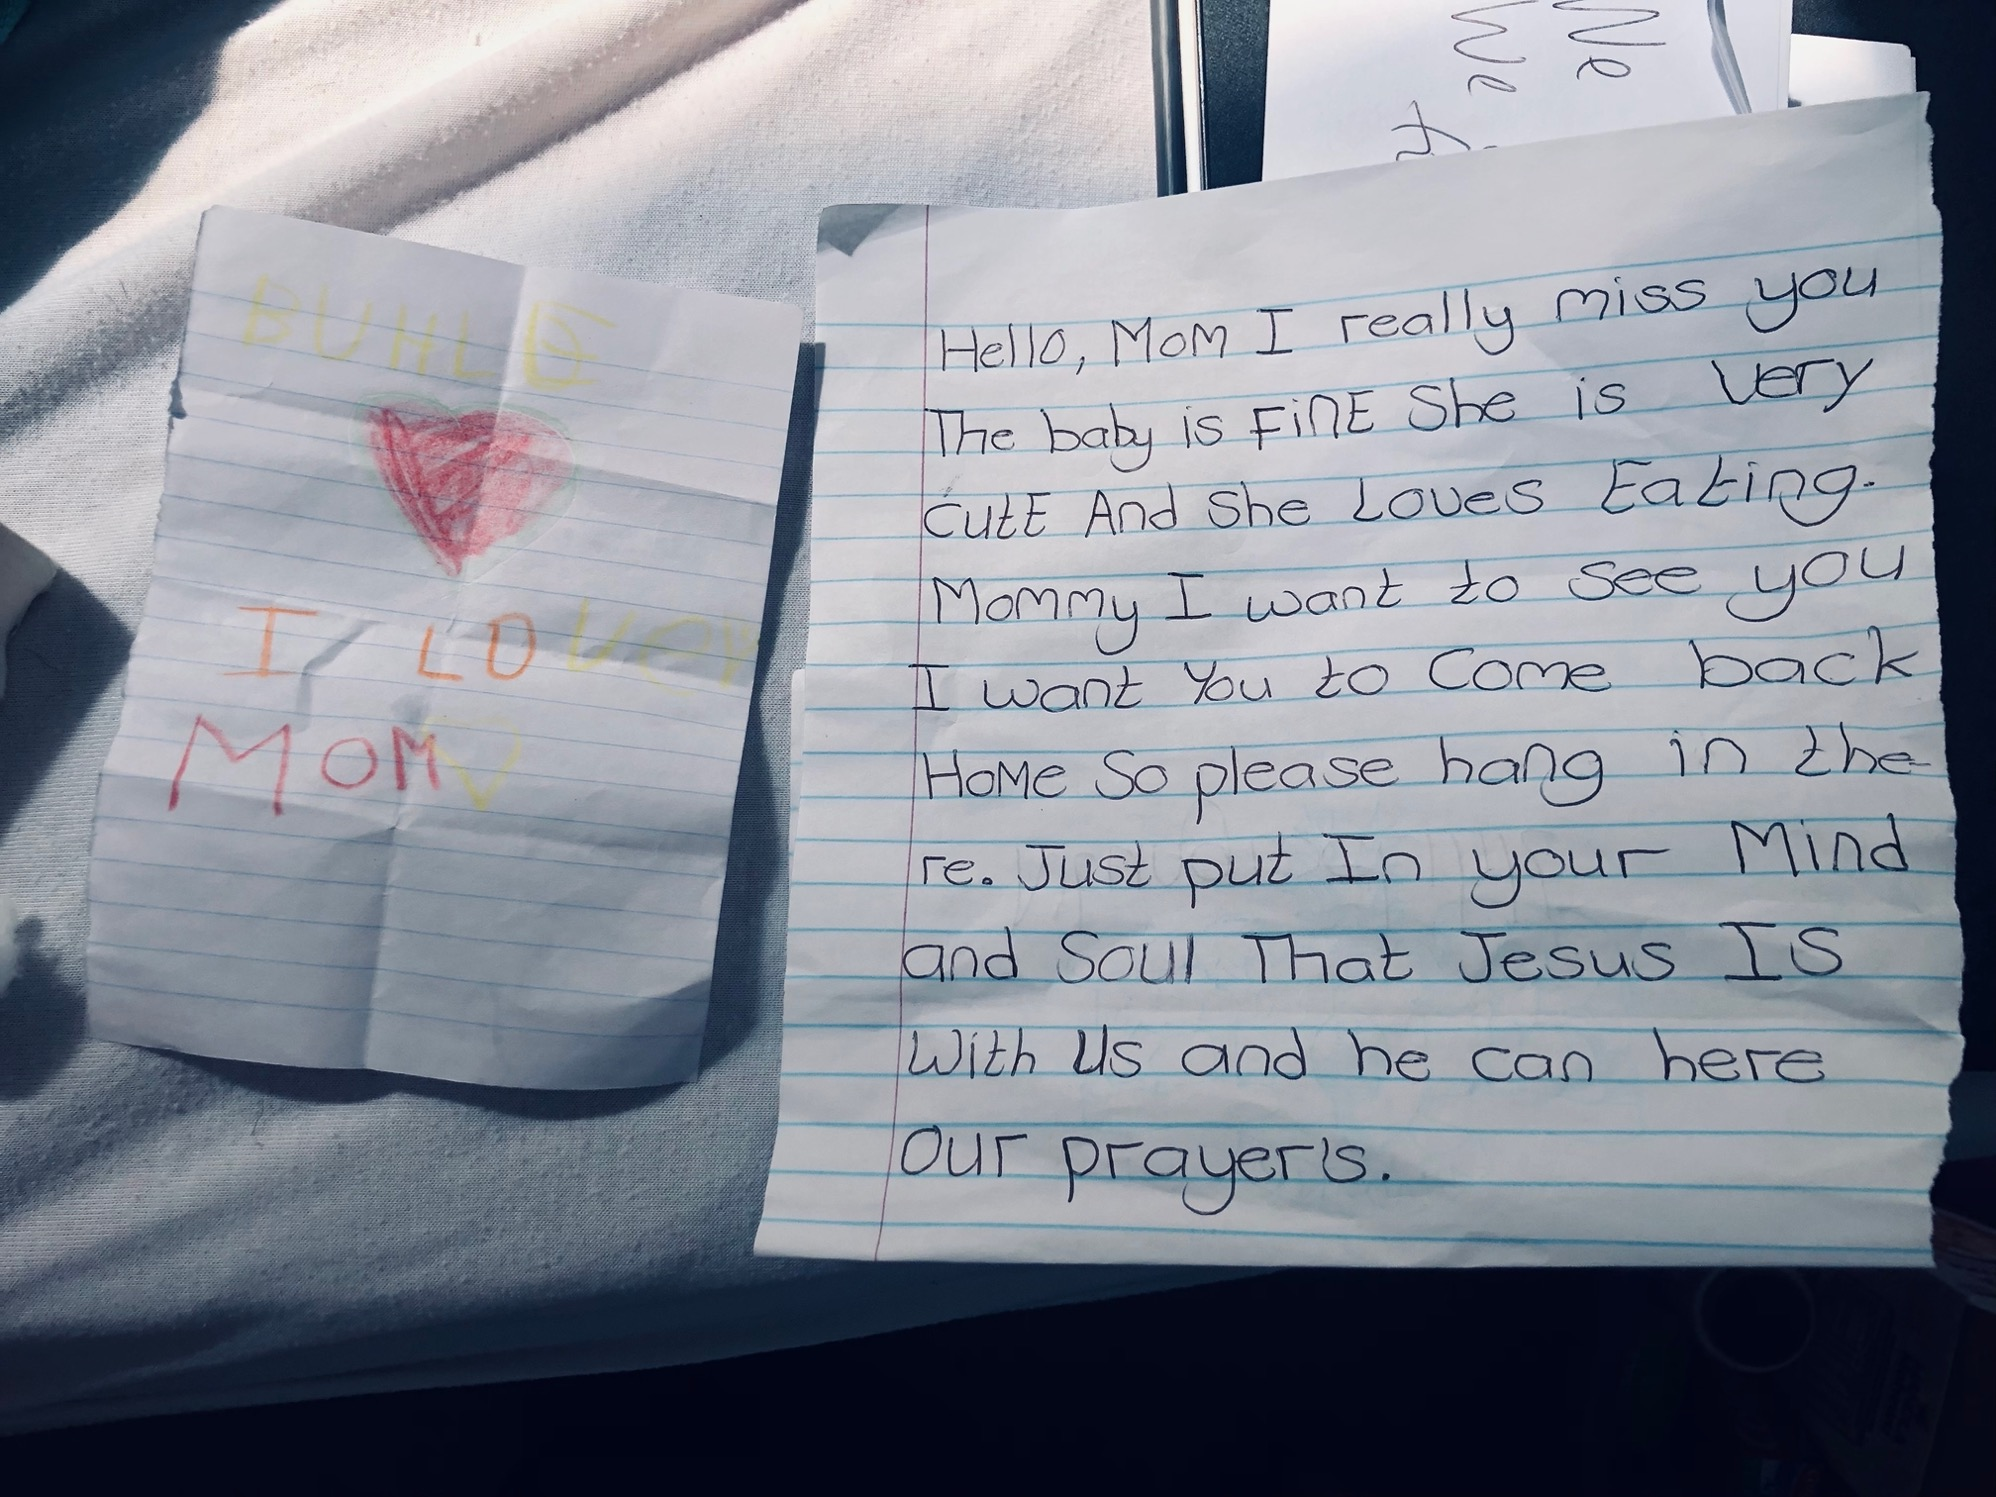 BUHLE
I LOVE
MOM
We
We
Hello, Mom I really miss you
The baby is FinE She is Very
CutE And She Loves Eating.
Mommy I want to See you
I want You to Come back
HoMe So please hang in the
re. Just put In your Mind
and Soul That Jesus IS
With Us and he can here
Our prayer's.